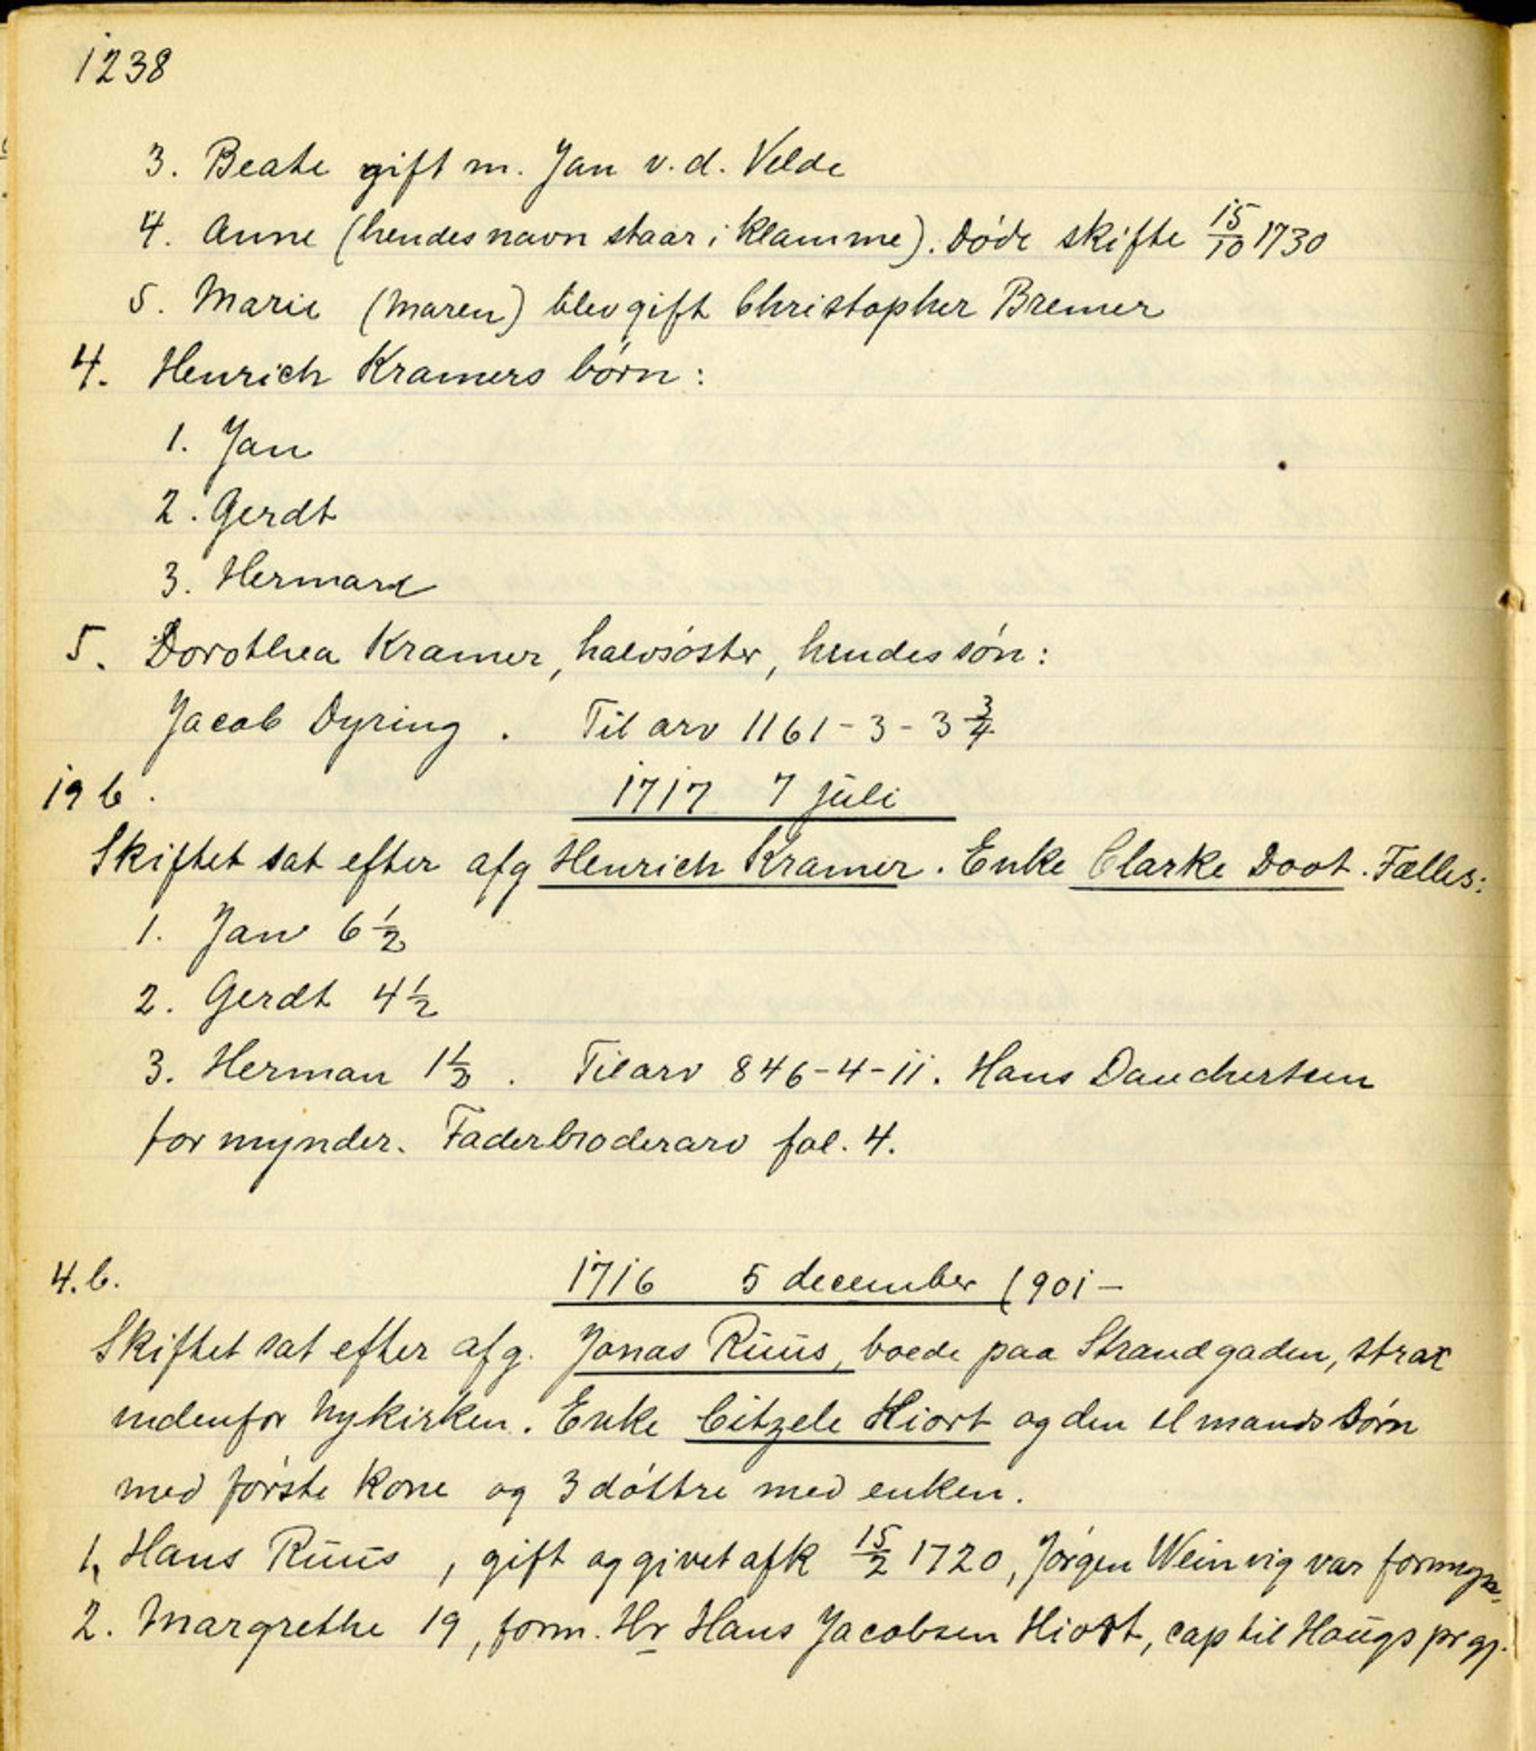 1238
3. Beate gift m. Jan v. d. Velde
4. Anne (hendes navn staar i klamme). Døde skifte 15/10 1730
5. Marie (Maren) blev gift Christopher Bremer
4. Henrich Kramers børn:
1. Jan
2. Gerdt
3. Herman
5. Dorothea Kramer, halvsøster, hendes søn:
Jacob Dyring . Til arv 1161-3-3 3/4
19 b. 1717 7 juli
Skiftet sat efter afg Henrich Kramer. Enke Clarke Doot. Fælles:
1. Jan 6 1/2
2. Gerdt 4 1/2
3. Herman 1 1/2 . Til arv 846-4-11. Hans Danchertsen
formynder. Faderbroderarv fol. 4.
4.b. 1716 5 december (901-
Skiftet sat efter afg. Jonas Ruus, boede paa Strandgaden, strax
indenfor Nykirken. Enke Citzele Hiort og den sl mands børn
med første kone og 3 døttre med enken.
1. Hans Ruus , gift og givet afk 15/2 1720, Jørgen Weinvig var formyn.
2. Margrethe 19, form. Hr Hans Jacobsen Hiort, cap til Haugs prgj.